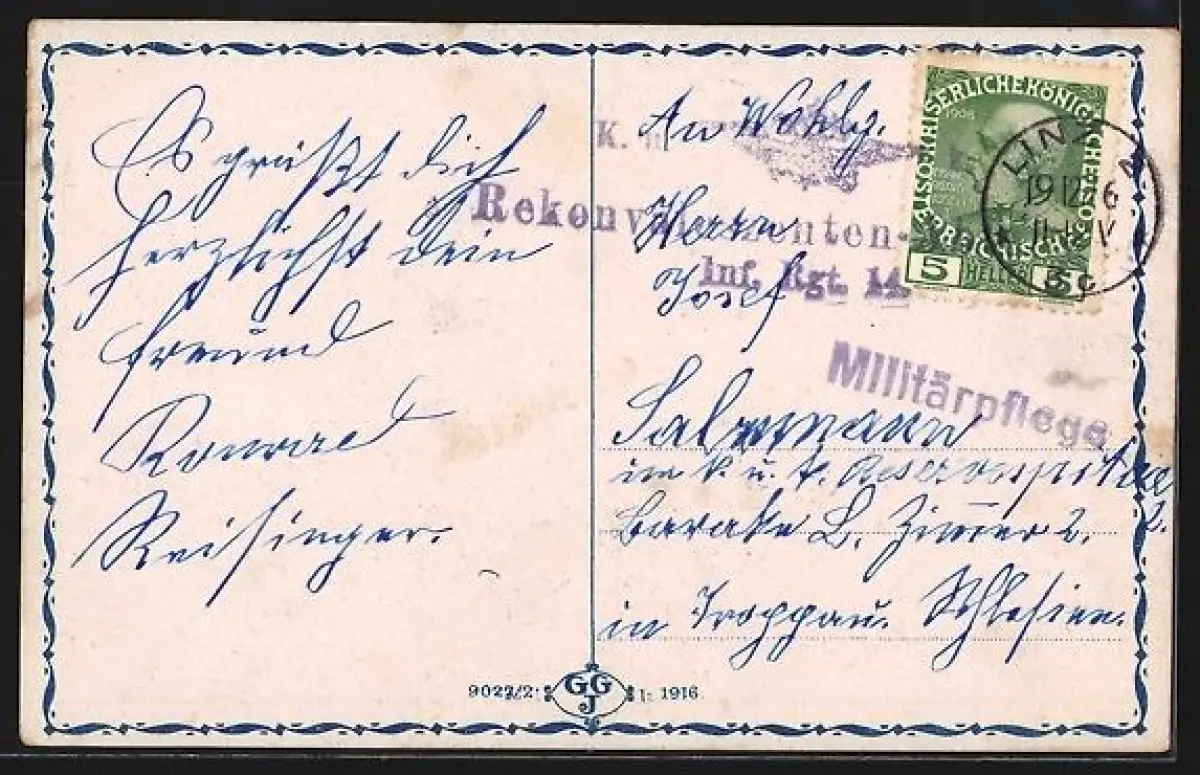 Es grüßt dich
herzlichst dein
freund
Konrad
Reisinger.
An Wohlg.
Herrn
Josef
Salzmann
im k. u. k. Reservespital
Barake L. Zimmer 2.
in Troppau. Schlesien.
K. u.
Rekonvaleszenten-
Inf. Rgt. 14.
Militärpflege
KAISERLICHE KÖNIGLICHE ÖSTERREICHISCHE
1908
5 HELLER 5
LINZ
19.12.16
3c
9022/2. GGJ 1: 1916.